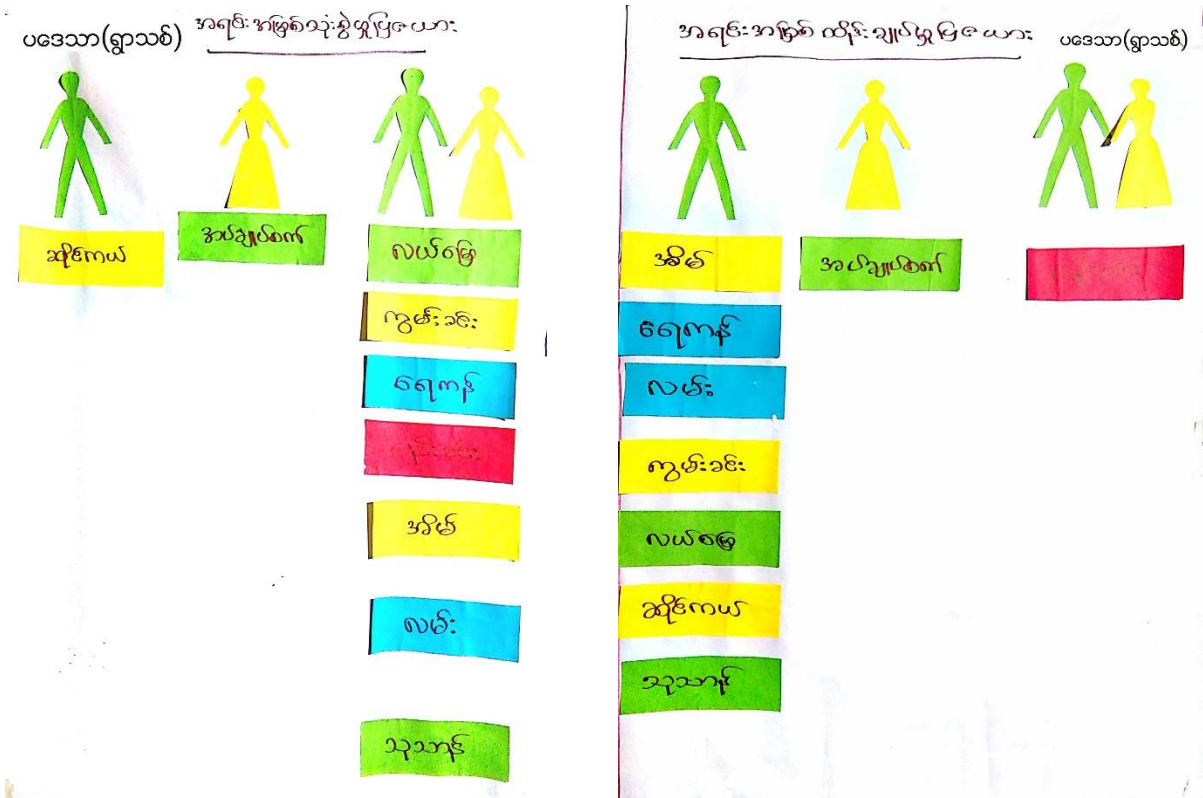 ပဒေသာ(ရွာသစ်)
အရင်းအမြစ်သုံးစွဲမှုပြဇယား
ဆိုင်ကယ်
အပ်ချုပ်စက်
လယ်မြေ
ကွမ်းခင်း
ရေကန်
အိမ်
လမ်း
သုသာန်
အရင်းအမြစ် ထိန်းချုပ်မှုပြဇယား
ပဒေသာ(ရွာသစ်)
အိမ်
ရေကန်
လမ်း
ကွမ်းခင်း
လယ်မြေ
ဆိုင်ကယ်
သုသာန်
အပ်ချုပ်စက်